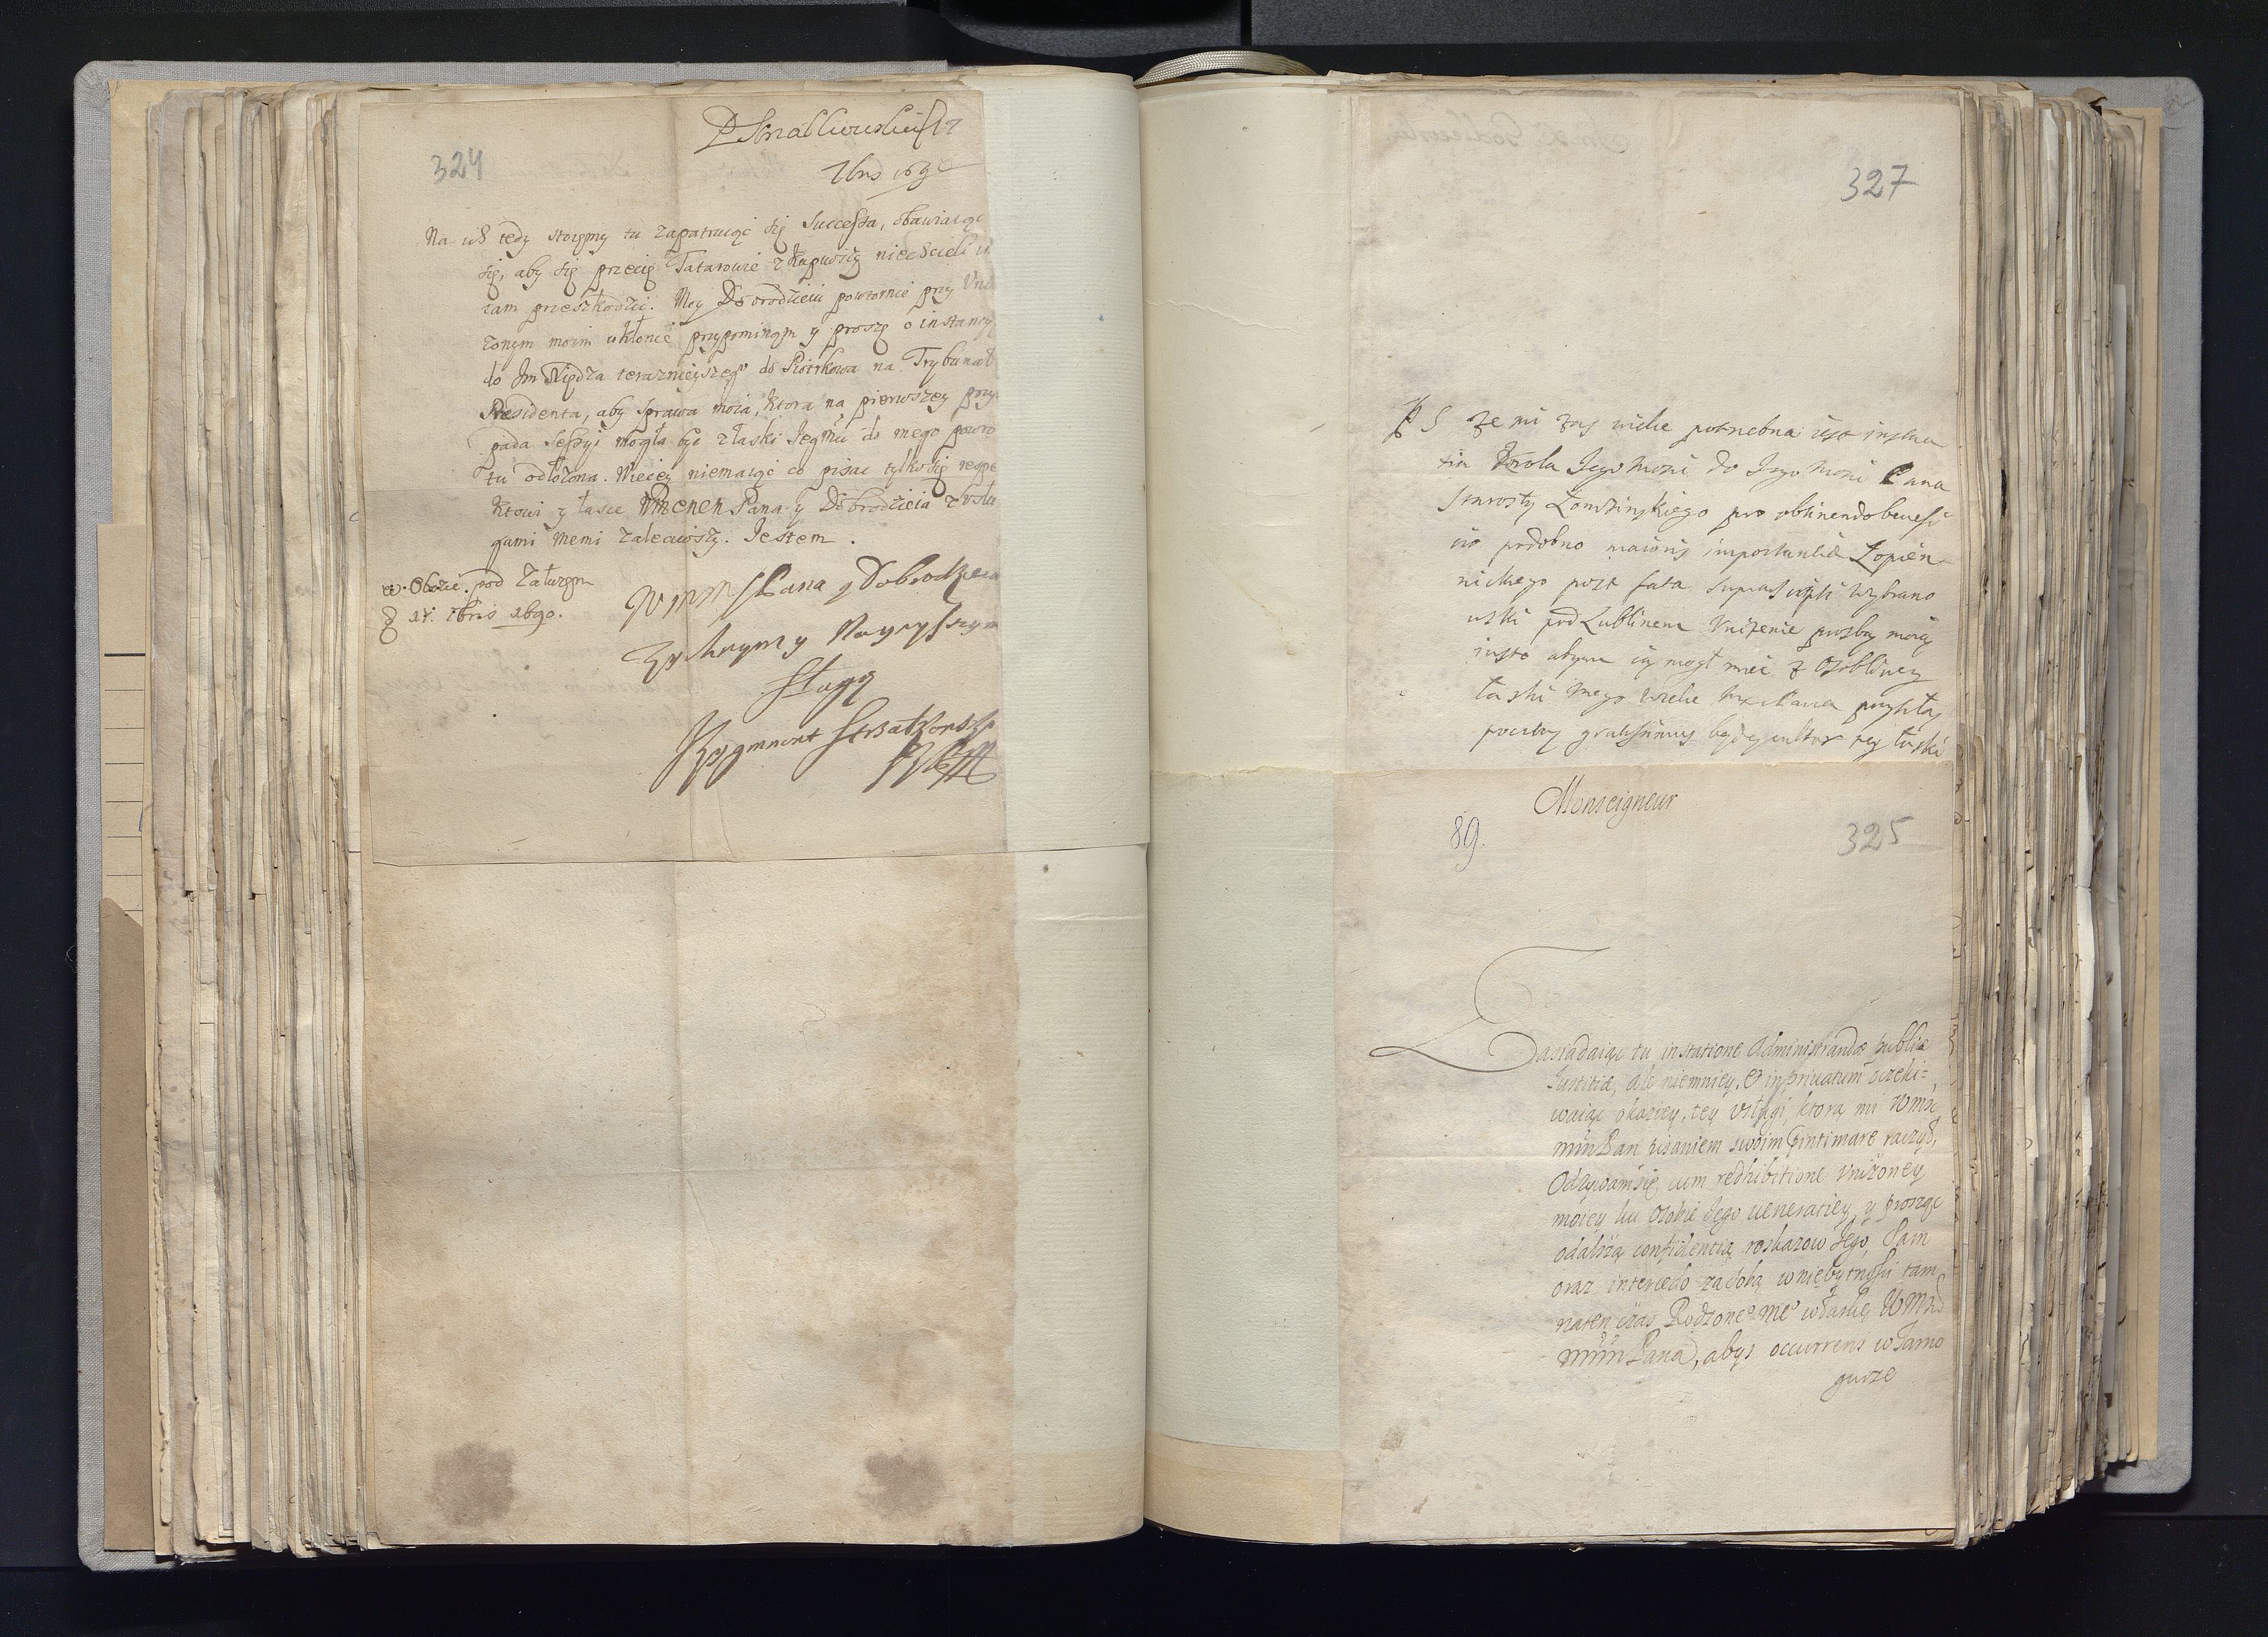 324
7bris 1690
Na us tedy stoięmy tu zapatruiąc się Successa, obawiaiąc
się, aby się przecię Tatarowie niechcieli
tam przeszkodzić. Moy Dobrodzieiu powtornie przy Vni
żonym moim ukłonie przypominam y proszę o instancyą
do Jm Xiędza terazniejszego do Piotrkowa na Trybunał
Presidenta, aby sprawa moia, ktora na pierwszey przy
pada Sessyi mogła bydz z łaski Jegmci do mego powro
tu odłożona. Więcey niemaiąc co pisac tylko się respe
ktowi y łasce Pana y Dobrodzieia z usłu
gami memi zaleciwszy. Jestem.
w Obozie pod Załuzem
7bris 1690.
WMM Pana y Dobrodzieia
Zyczliwym y Naynyższym
Sługą
Zygmunt
327
PS że mi zas wielce potrzebna iest instan
tia Krola Jego Mosci do Jego Mosci Pana
Starosty Łomzinskiego pro obtinendo benefi
cio podobno maioris importantiæ Łopien
nickiego post fata Wybrano
wski pod Lublinem Vniżenie proszby moią
abym ią mogł miec z Osobliwey
łaski mego wielce Pana
gratissimus będę cultor tey łaski
Monseigneur
89.
325
Zasiadaiąc tu in statione Administrandæ publicæ
Iustitiæ, ale niemniey, et in privatum oczeki=
waiąc okaziey, tey usługi, ktorą mi Wmsc
mm Pan pisaniem swoim intimare raczył,
Odzywam się cum redhibitione vniżoney
moiey ku Osobie Jego veneratiey, y prosząc
o dalszą confidentią roskazow Jego, Sam
oraz intercedo za sobą w niebytnosci tam
naten czas Rodzone° me° w łasce WMsci
mm Pana, abys occurrens w Tarno
gurze